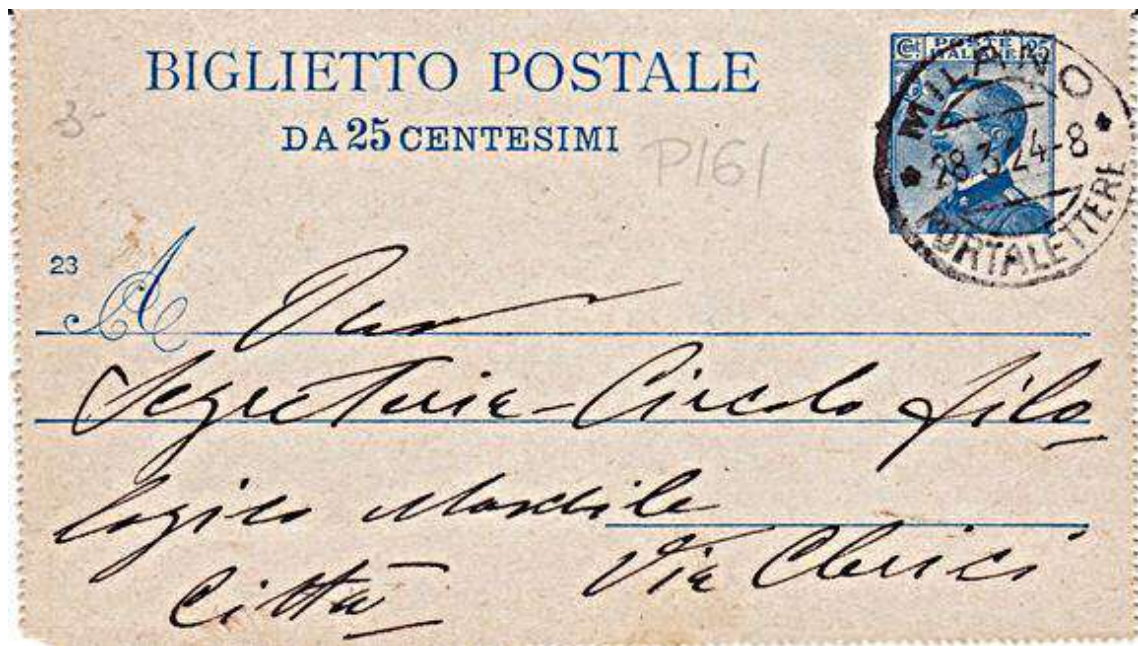 BIGLIETTO POSTALE
DA 25 CENTESIMI
Cent POSTE ITALIANE 25
MILANO
28.3.24-8
PORTALETTERE
3-
P161
23
A
Segreteria - Circolo filo
logico Maschile
Via Clerici
Città